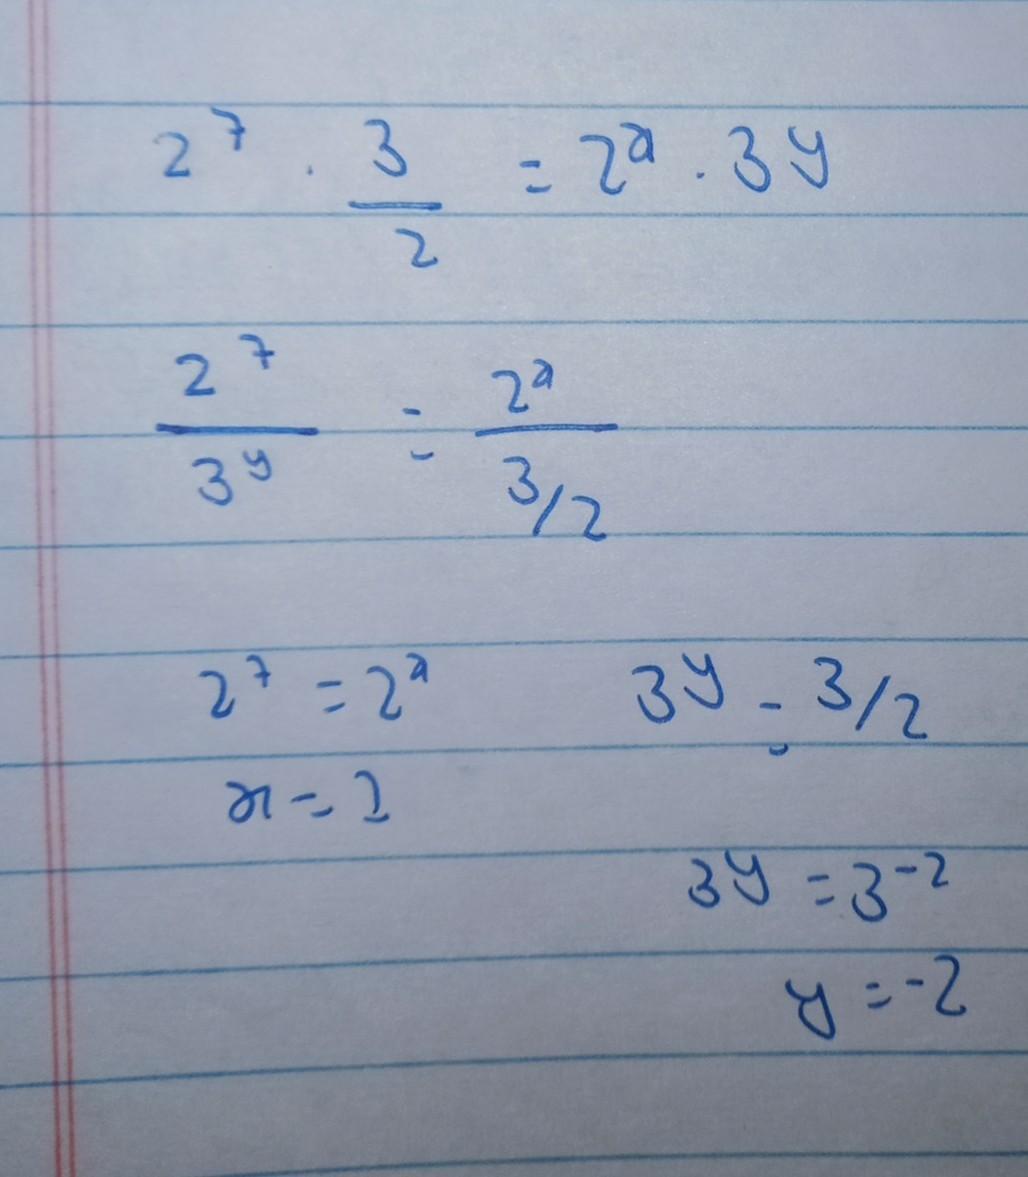 2⁷ · 3/2 = 2ˣ · 3ʸ
2⁷/3ʸ = 2ˣ/(3/2)
2⁷ = 2ˣ 3ʸ = 3/2
x = 2
3ʸ = 3⁻²
y = -2